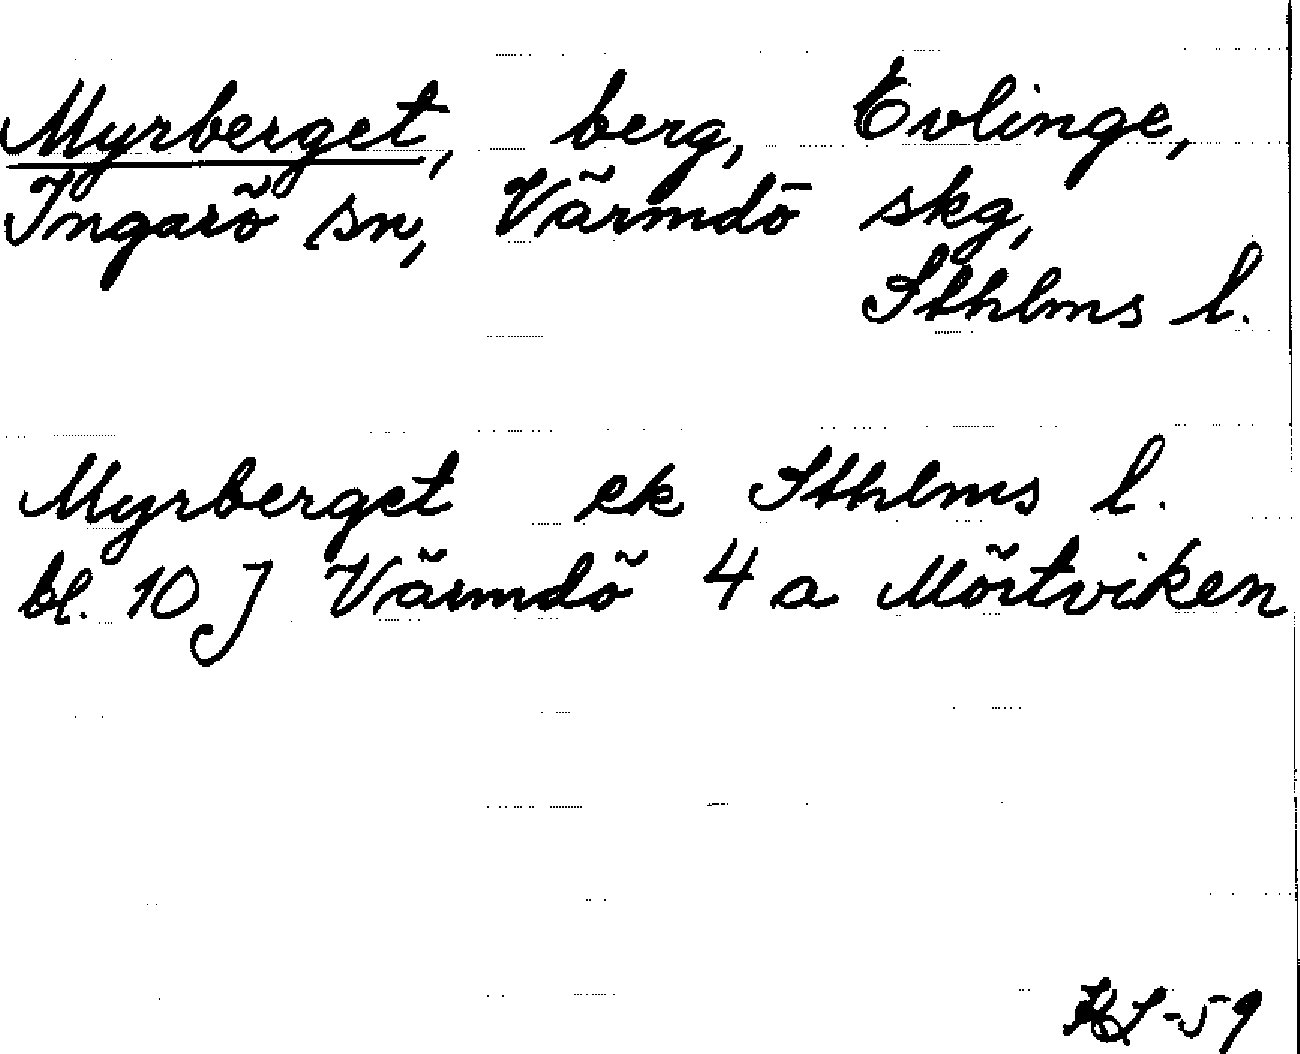 Myrberget, berg, Evlinge,
Ingarö sn, Värmdö skg,
Sthlms l.
Myrberget ek Sthlms l.
bl. 10 J Värmdö 4 a Mörtviken